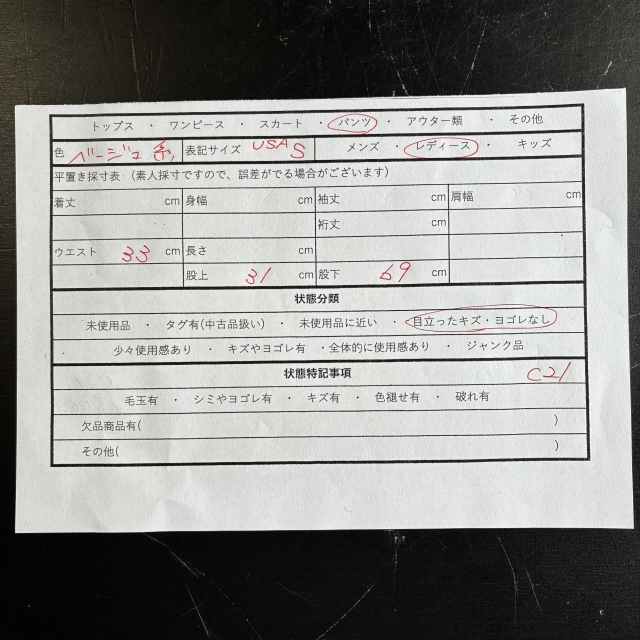 トップス ・ ワンピース ・ スカート ・ パンツ ・ アウター類 ・ その他
色 ベージュ系 表記サイズ USA S メンズ ・ レディース ・ キッズ
平置き採寸表（素人採寸ですので、誤差がでる場合がございます）
着丈 cm 身幅 cm 袖丈 cm 肩幅 cm
裄丈 cm
ウエスト 33 cm 長さ cm
股上 31 cm 股下 69 cm
状態分類
未使用品 ・ タグ有(中古品扱い) ・ 未使用品に近い ・ 目立ったキズ・ヨゴレなし
少々使用感あり ・ キズやヨゴレ有 ・全体的に使用感あり ・ ジャンク品
状態特記事項 C21
毛玉有 ・ シミやヨゴレ有 ・ キズ有 ・ 色褪せ有 ・ 破れ有
欠品商品有( )
その他( )